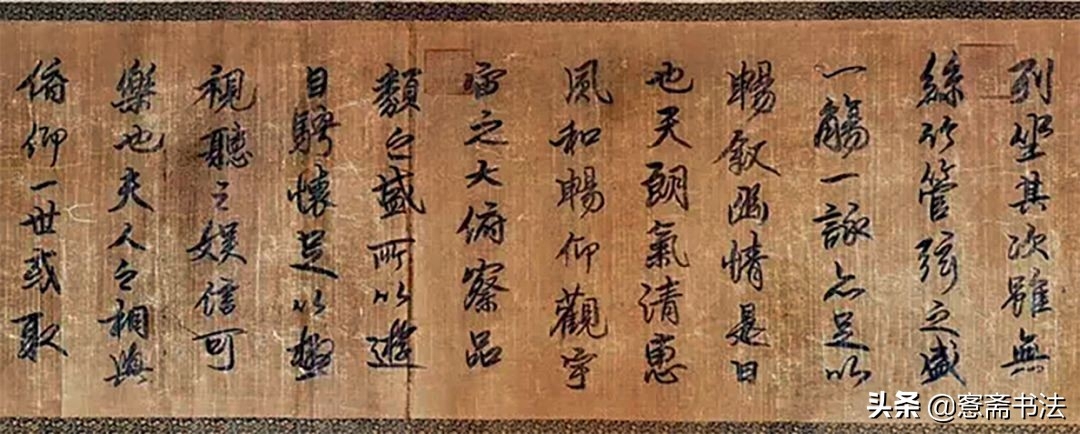 列坐其次雖無
絲竹管弦之盛
一觴一詠亦足以
暢敘幽情是日
也天朗氣清惠
風和暢仰觀宇
宙之大俯察品
類之盛所以遊
目騁懷足以極
視聽之娛信可
樂也夫人之相與
俯仰一世或取
头条 @愙斋书法